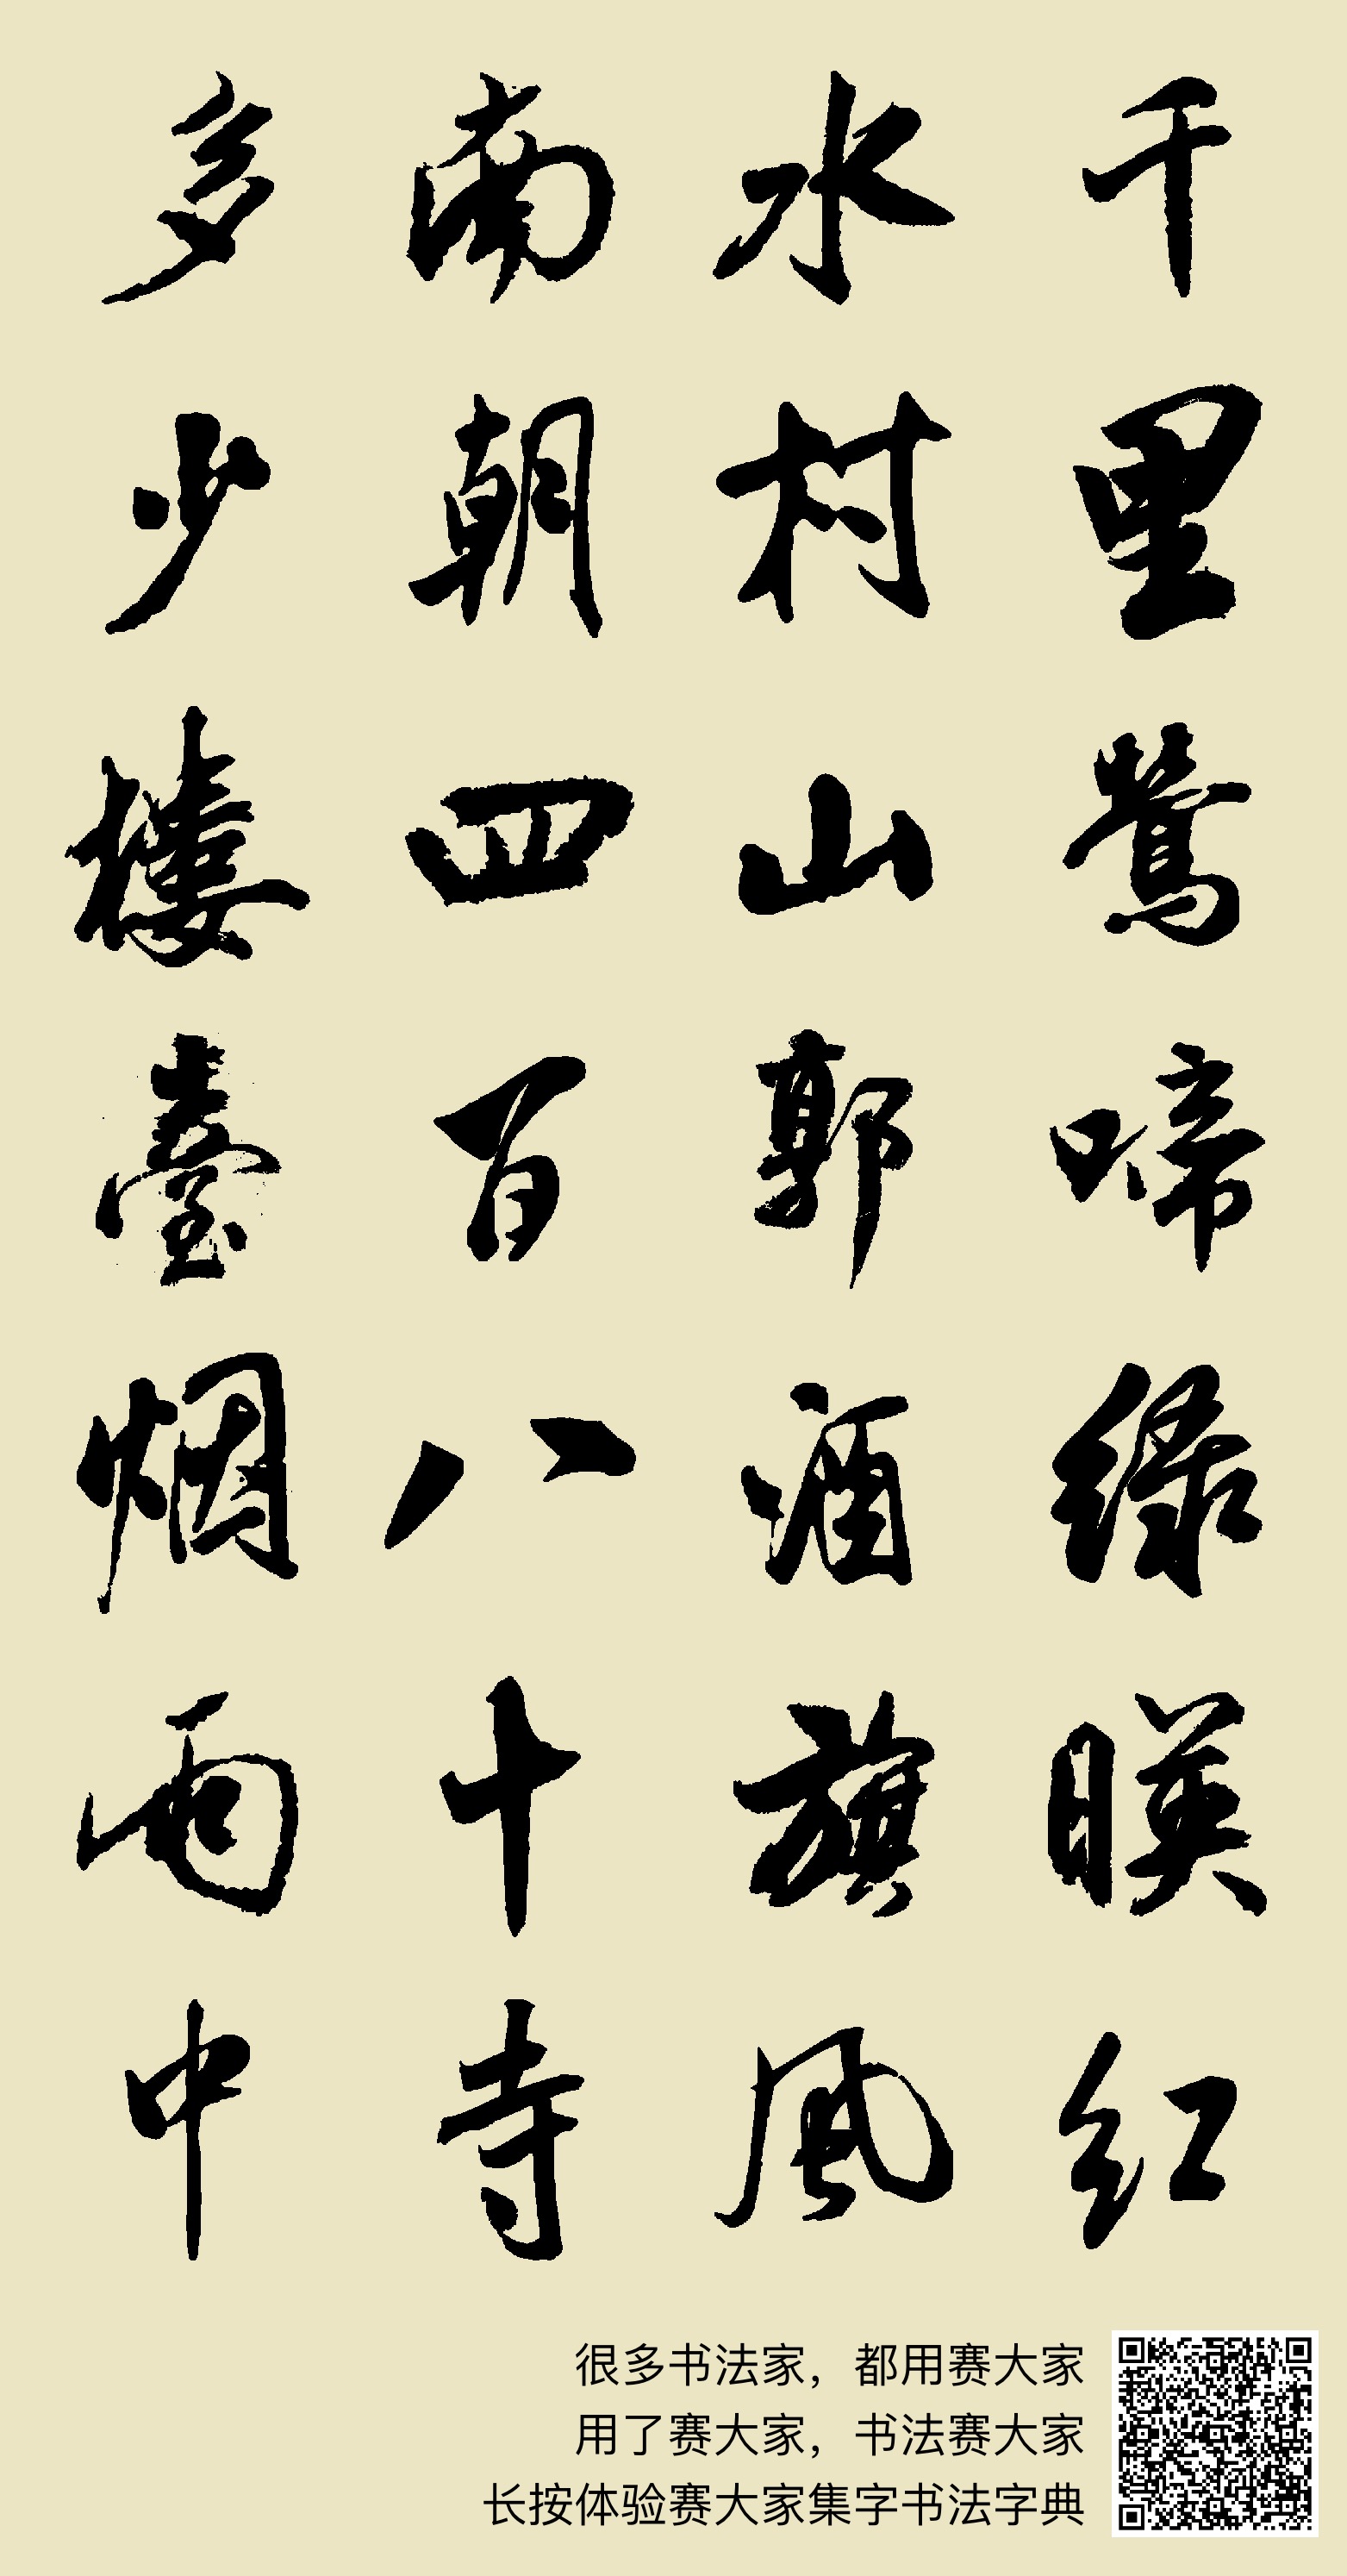 千里鶯啼绿暎红
水村山郭酒旗風
南朝四百八十寺
多少樓臺烟雨中
很多书法家，都用赛大家
用了赛大家，书法赛大家
长按体验赛大家集字书法字典